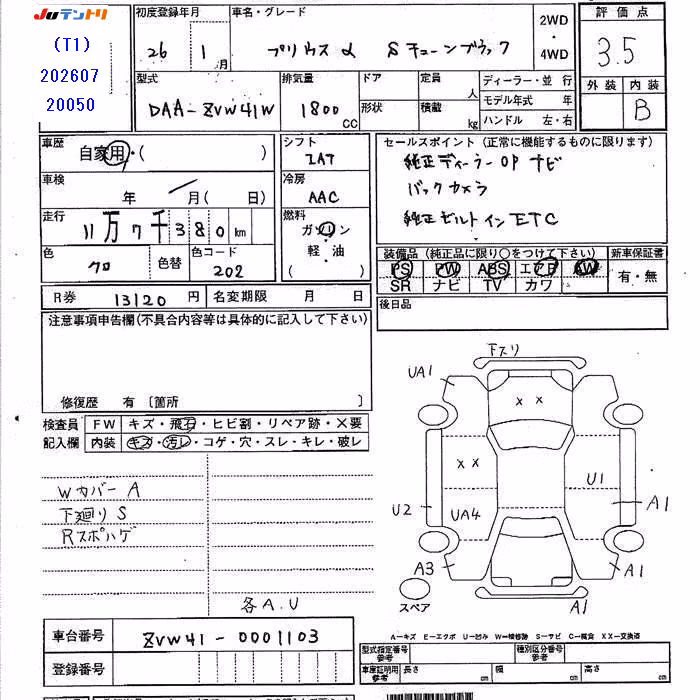 JUテントリ
(T1)
202607
20050
初度登録年月
26 年 1 月
車名・グレード
プリウス α S チューンブラック
2WD
・
4WD
評価点
3.5
外装 内装
B
型式
DAA-ZVW41W
排気量
1800 CC
ドア
形状
定員 人
積載 kg
ディーラー・並行
モデル年式 年
ハンドル 左・右
車歴
自家用・( )
車検
年 月( 日)
走行
11万7千380km
色
クロ
色替
色コード
202
シフト
IAT
冷房
AAC
燃料
ガソリン
・
軽・油
( )
セールスポイント (正常に機能するものに限ります)
純正ディーラーOP ナビ
バックカメラ
純正ビルトインETC
装備品 (純正品に限り○をつけて下さい)
PS PW ABS エアB AW
SR ナビ TV カワ
新車保証書
有・無
後日品
R券 13120 円
名変期限 月 日
注意事項申告欄(不具合内容等は具体的に記入して下さい)
修復歴 有 〔箇所 〕
検査員
記入欄
FW キズ・飛石・ヒビ割・リペア跡・×要
内装 キズ・汚レ・コゲ・穴・スレ・キレ・破レ
Wカバー A
下廻り S
Rスポハゲ
各A.U
下スリ
UA1
× ×
× ×
U1
U2
UA4
A1
A3
A1
スペア
A1
A－キズ E－エクボ U－凹み W－補修跡 S－サビ C－腐食 XX－交換済
車台番号 ZVW41-0001103
登録番号
型式指定番号 参考
種別区分番号 参考
車庫証明用 参考
長さ cm
幅 cm
高さ cm